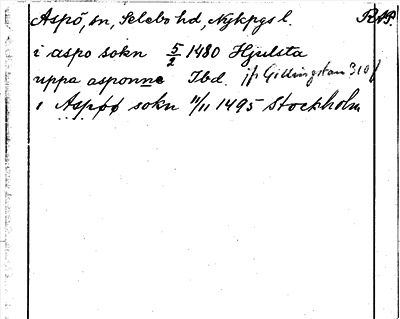 Aspö, sn, Selebo hd, Nykpgs l. RAP.
i aspo sokn 5/2 1480 Hjulsta
uppa asponne Ibd. jfr Gillingstam 310 f
i Aspøø sokn 11/11 1495 Stockholm